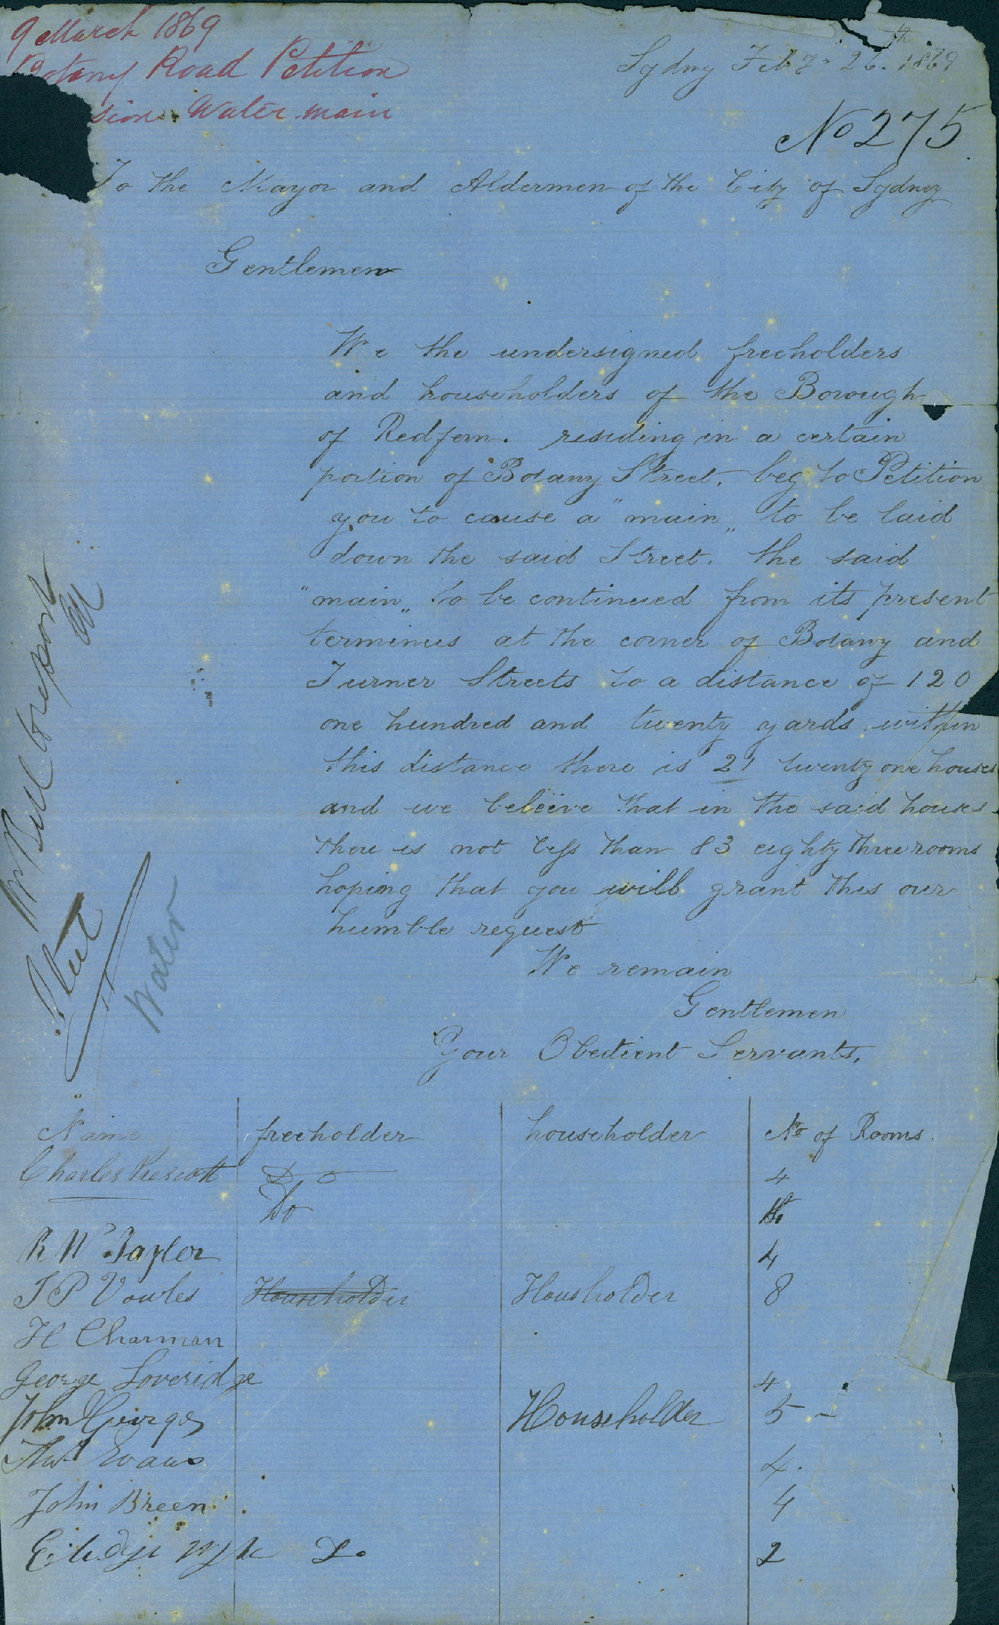 9 March 1869
Botany Road Petition
sion Water main
Sydney Feby 26th 1869
No 275
To the Mayor and Aldermen of the City of Sydney
Gentlemen
We the undersigned freeholders
and householders of the Borough
of Redfern. residing in a certain
portion of Botany Street, beg to Petition
you to cause a "main" to be laid
down the said Street. the said
"main" to be continued from its present
terminus at the corner of Botany and
Turner Streets to a distance of 120
one hundred and twenty yards, within
this distance there is 21 twenty one houses
and we beleive that in the said houses
there is not less than 83 eighty three rooms
hoping that you will grant this our
humble request
We remain
Gentlemen
Your Obedient Servants,
Mr Bell to report
Water
Name freeholder householder No of Rooms.
Charles Prescott Do 4
Do
R W Taylor 4
T P Vowles Householder Housholder 8
H Charman
George Loveridge 4
John George Householder 5 -
Evans 4.
John Breen 4
Do 2